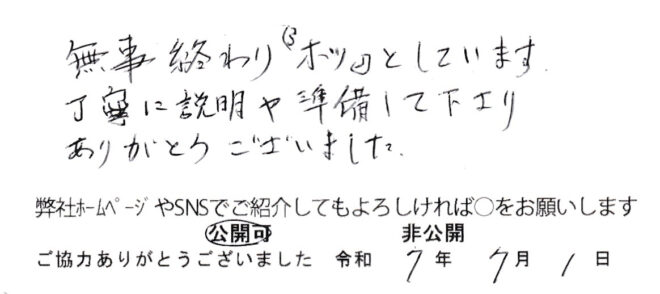 無事終わり「ホッ」としています.
丁寧に説明や準備して下さり
ありがとうございました.
弊社ホームページやSNSでご紹介してもよろしければ○をお願いします
公開可 非公開
ご協力ありがとうございました 令和 7年 7月 1日